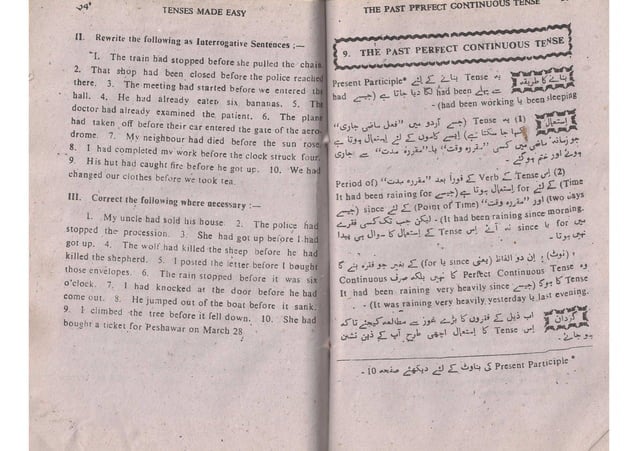 TENSES MADE EASY
II. Rewrite the following as Interrogative Sentences :—
1. The train had stopped before she pulled the chain.
2. That shop had been closed before the police reached
there. 3. The meeting had started before we entered the
hall. 4. He had already eaten six bananas. 5. The
doctor had already examined the patient. 6. The plane
had taken off before their car entered the gate of the aero-
drome. 7. My neighbour had died before the sun rose.
8. I had completed my work before the clock struck four.
9. His hut had caught fire before he got up. 10. We had
changed our clothes before we took tea.
III. Correct the following where necessary :—
1. My uncle had sold his house. 2. The police had
stopped the procession. 3. She had got up before I had
got up. 4. The wolf had killed the sheep before he had
killed the shepherd. 5. I posted the letter before I bought
those envelopes. 6. The rain stopped before it was six
o'clock. 7. I had knocked at the door before he had
come out. 8. He jumped out of the boat before it sank.
9. I climbed the tree before it fell down. 10. She had
bought a ticket for Peshawar on March 28
THE PAST PERFECT CONTINUOUS TENSE
9. THE PAST PERFECT CONTINUOUS TENSE
بنانے کا طریقہ
یہ Tense بنانے کے لئے Present Participle*
سے پہلے had been لگا دیا جاتا ہے (جیسے had
had been working یا been sleeping) -
استعمال
(1) یہ Tense (جسے اردو میں "فعل ماضی جاری"
کہا جا سکتا ہے) ایسے کاموں کے لئے استعمال ہوتا ہے
جو زمانہ ماضی میں کسی "مقررہ وقت" یا "مقررہ مدت" سے جاری
(2) اس Tense کے Verb کے فوراً بعد "مقررہ مدت" (Period of
Time) کے لئے for استعمال ہوتا ہے (جیسے It had been raining for
two days) اور "مقررہ وقت" (Point of Time) کے لئے since (جیسے
It had been raining since morning.) - لیکن جب تک کسی فقرے
میں for یا since نہ آئے اس Tense کے استعمال کا سوال ہی پیدا
نہیں ہوتا -
(نوٹ) ان دو الفاظ (یعنی since یا for) کے بغیر جو فقرہ بنے گا
وہ Perfect Continuous Tense کا نہیں بلکہ صرف Continuous
Tense کا ہوگا (جیسے It had been raining very heavily since
It was raining very heavily yesterday یا last evening.) -
گردان
اب ذیل کے فقروں کا بڑے غور سے مطالعہ کیجئے تاکہ
اس Tense کا استعمال اچھی طرح آپ کے ذہن نشین
ہو جائے -
* Present Participle کی بناوٹ کے لئے دیکھئے صفحہ 10 -